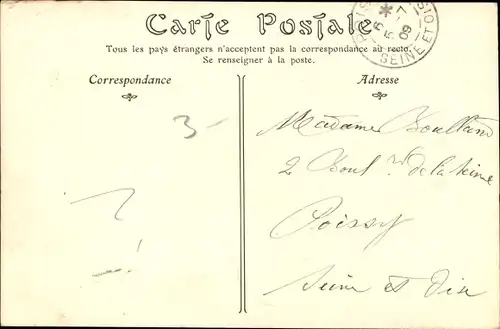 Carte Postale
Tous les pays étrangers n'acceptent pas la correspondance au recto.
Se renseigner à la poste.
Correspondance
Adresse
SEINE ET O
5 -7
09
3-
Madame
2 Boul rd de la Seine
Poissy
Seine et Oise